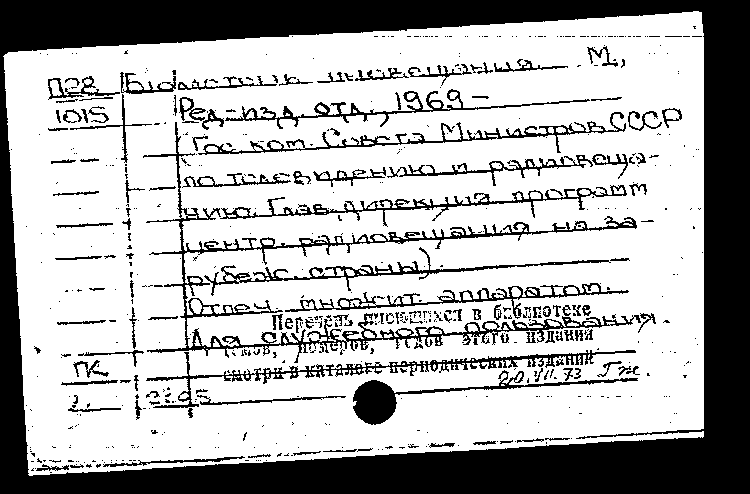 П28 Бюллетень иновещания. М,
1015 Ред-изд. отд., 1969 -
(Гос. ком. Совета Министров СССР
по телевидению и радиовеща-
нию. Глав. дирекция программ
центр. радиовещания на за-
рубеж. страны)
Отпеч. множит. аппаратом.
Перечень имеющихся в библиотеке
Для служебного пользования.
томов, номеров, годов этого издания
ПК смотри в каталоге периодических изданий
20.VII.73 Гж.